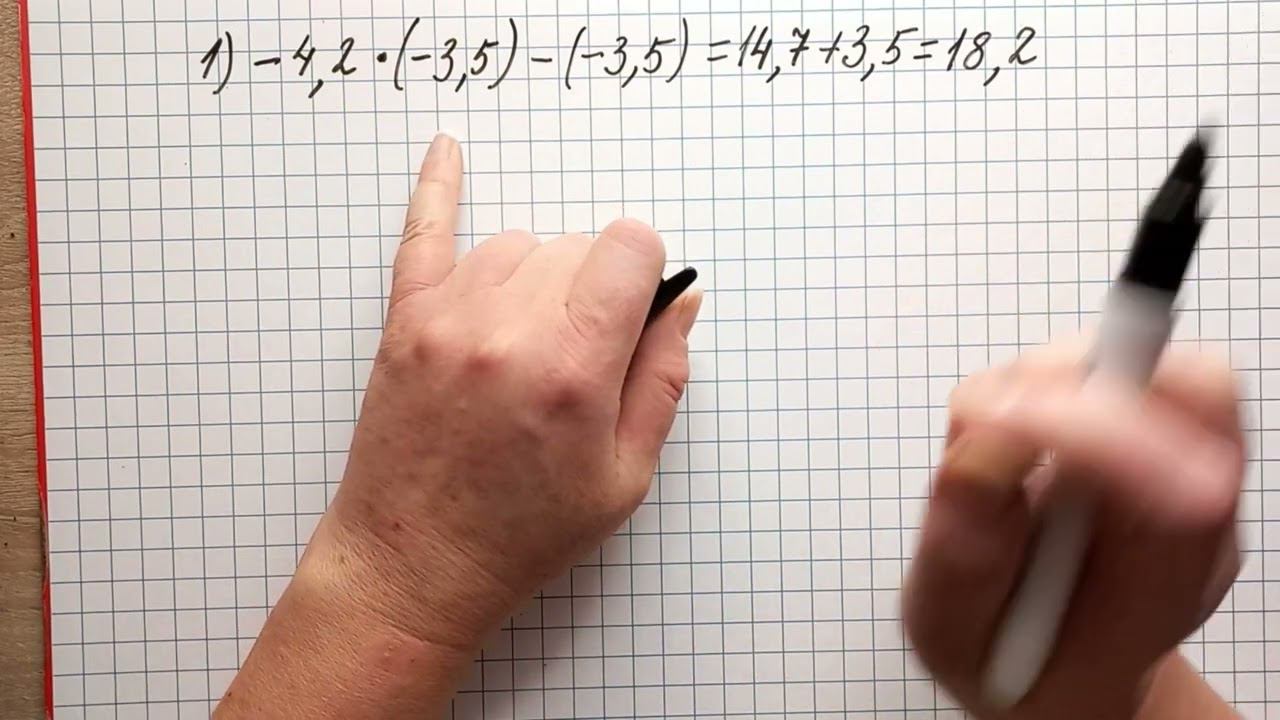 1) - 4,2 · (-3,5) - (-3,5) = 14,7 + 3,5 = 18,2